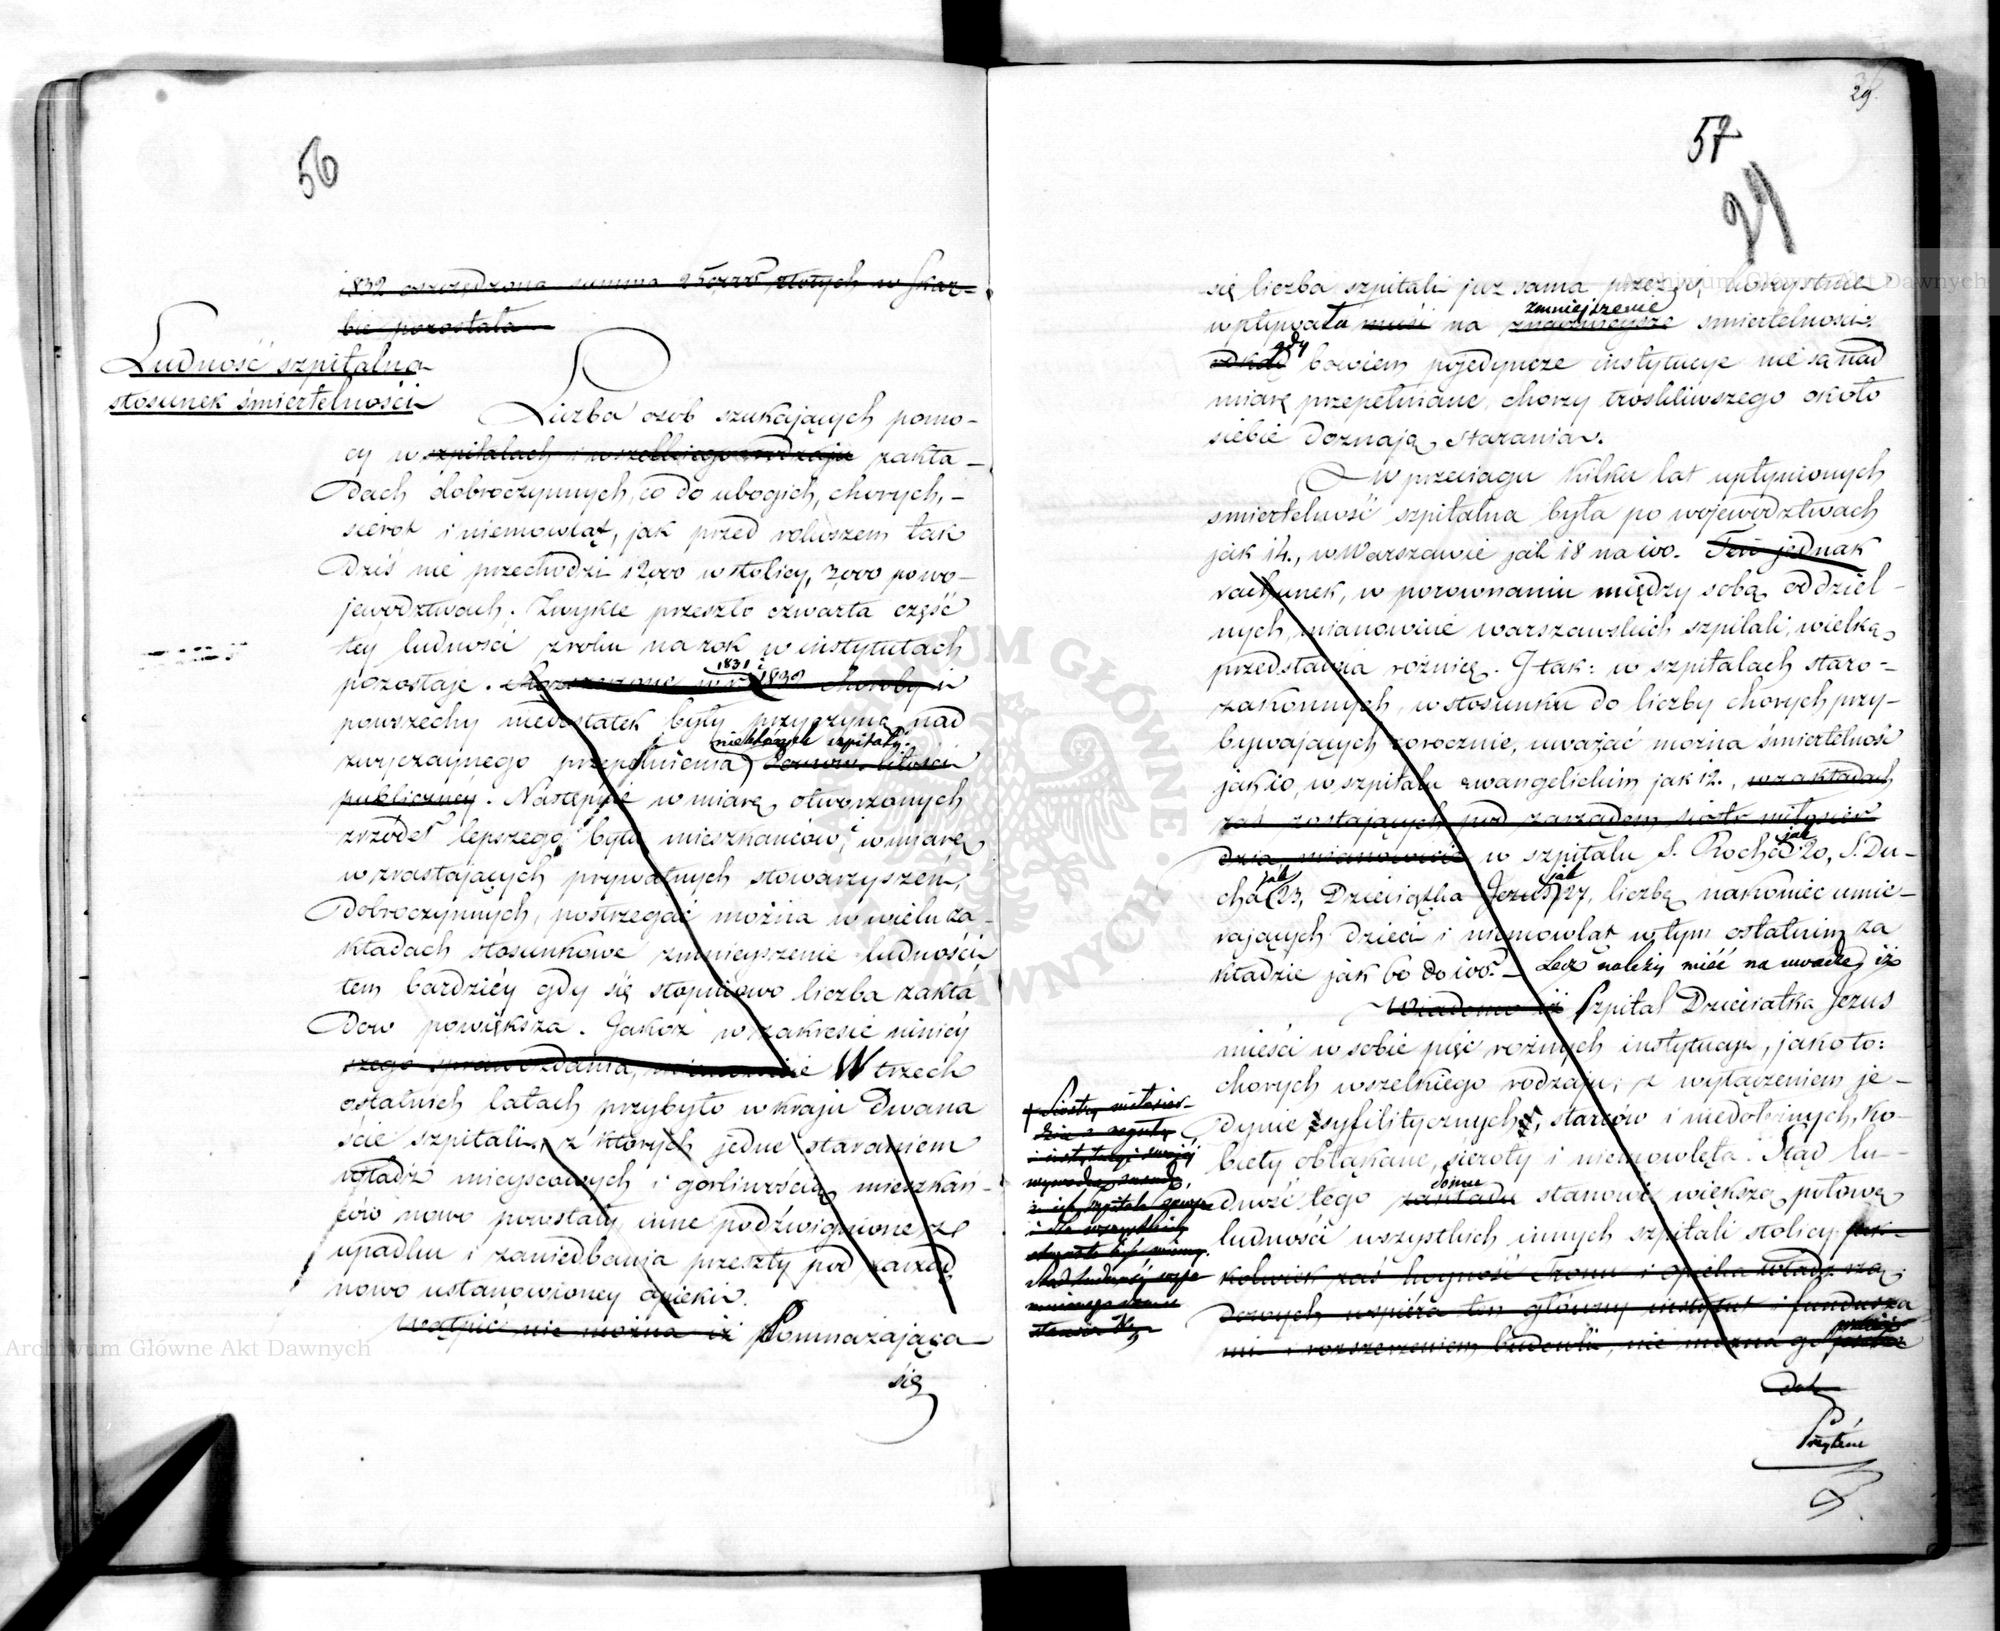 56
1832 oszczędzona summa złotych w Skar-
bie pozostała
Ludność szpitalna
stosunek śmiertelności
Liczba osob szukających pomo-
cy w szpitalach i wszelkiego rodzaju zakła-
dach dobroczynnych, co do ubogich, chorych,
sierot i niemowląt, jak przed rokuszem tak
dziś nie przechodzi 12,000 w stolicy, 7,000 po wo-
jewództwach. Zwykle przeszło czwarta część
tey ludności z roku na rok w instytutach
1831 i
pozostaje. w r. 1832 choroby i
powszechny niedostatek były przyczyną nad
niektórych szpitali.
zwyczaynego przepełnienia
publiczney. Następnie w miarę otworzonych
źródeł lepszego bytu mieszkańców, w miarę
wzrastających prywatnych stowarzyszeń
dobroczynnych, postrzegać można w wielu za-
kładach stosunkowe zmnieyszenie ludności
tem bardziéy gdy się stopniowo liczba zakła
dow powiększa. Jakoż w zakresie niniéy
szego sprawozdania, W trzech
ostatnich latach przybyło w kraju dwana
ście szpitali, z których jedne staraniem
władz mieyscowych i gorliwością mieszkań-
ców nowo powstały, inne podźwignione z
upadku i zaniedbania przeszły pod zarząd
nowo ustanowioney opieki.
Wątpić nie można iż Pomnażająca
się
29.
57
29
się liczba szpitali już sama przez się korzystnie
zmniejszenie
wpływała musi na znaczniejsze śmiertelności.
gdy
bowiem pojedyncze instytucye nie są nad
miarę przepełniane, chorzy troskliwszego około
siebie doznają starania.
W przeciągu kilku lat upłynionych
śmiertelność szpitalna była po województwach
jak 14., w Warszawie jak 18 na 100. Ten jednak
rachunek, w porownaniu między sobą oddziel-
nych, mianowicie warszawskich szpitali, wielką
przedstawia różnicę. I tak: w szpitalach staro-
zakonnych, w stosunku do liczby chorych przy-
bywających corocznie, uważać można śmiertelność
jak 10, w szpitalu ewangelickim jak 12., w zakładach
zaś zostających pod zarządem siostr miłosier
jak
dzia, mianowicie w szpitalu S. Rocha 20, S. Du-
jak jak
cha 23, Dzieciątka Jezus 27, liczbę nakoniec umie-
rających dzieci i niemowląt w tym ostatnim za
kładzie jak 60 do 100. — Lecz należy mieć na uwadze, iż
Wiadomo iż Szpital Dzieciątka Jezus
mieści w sobie pięć różnych instytucyi, jako to:
chorych wszelkiego rodzaju, z wyłączeniem je-
dynie syfilitycznych, starców i niedołężnych, ko-
biety obłąkane, sieroty i niemowlęta. Stąd lu-
domu
dność tego zakładu stanowi większą połowę
ludności wszystkich innych szpitali stolicy. Jak-
kolwiek zaś hoyność Tronu i opieka władz rzą-
dowych wspiéra ten główny instytut i fundusza
mi i rozszerzeniem budowli, nie można go
Siostry miłosier-
dzia z reguły
i instytucyi swojéj
Przytém